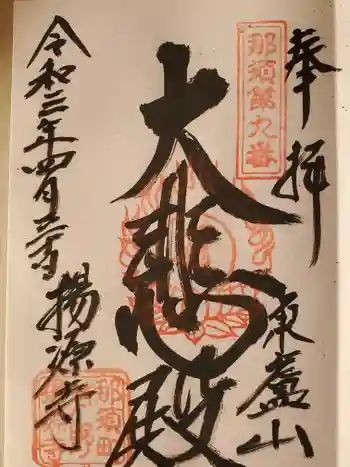 奉拝
那須第九番
東盧山
大悲殿
令和三年四月三日
揚源寺
那須町